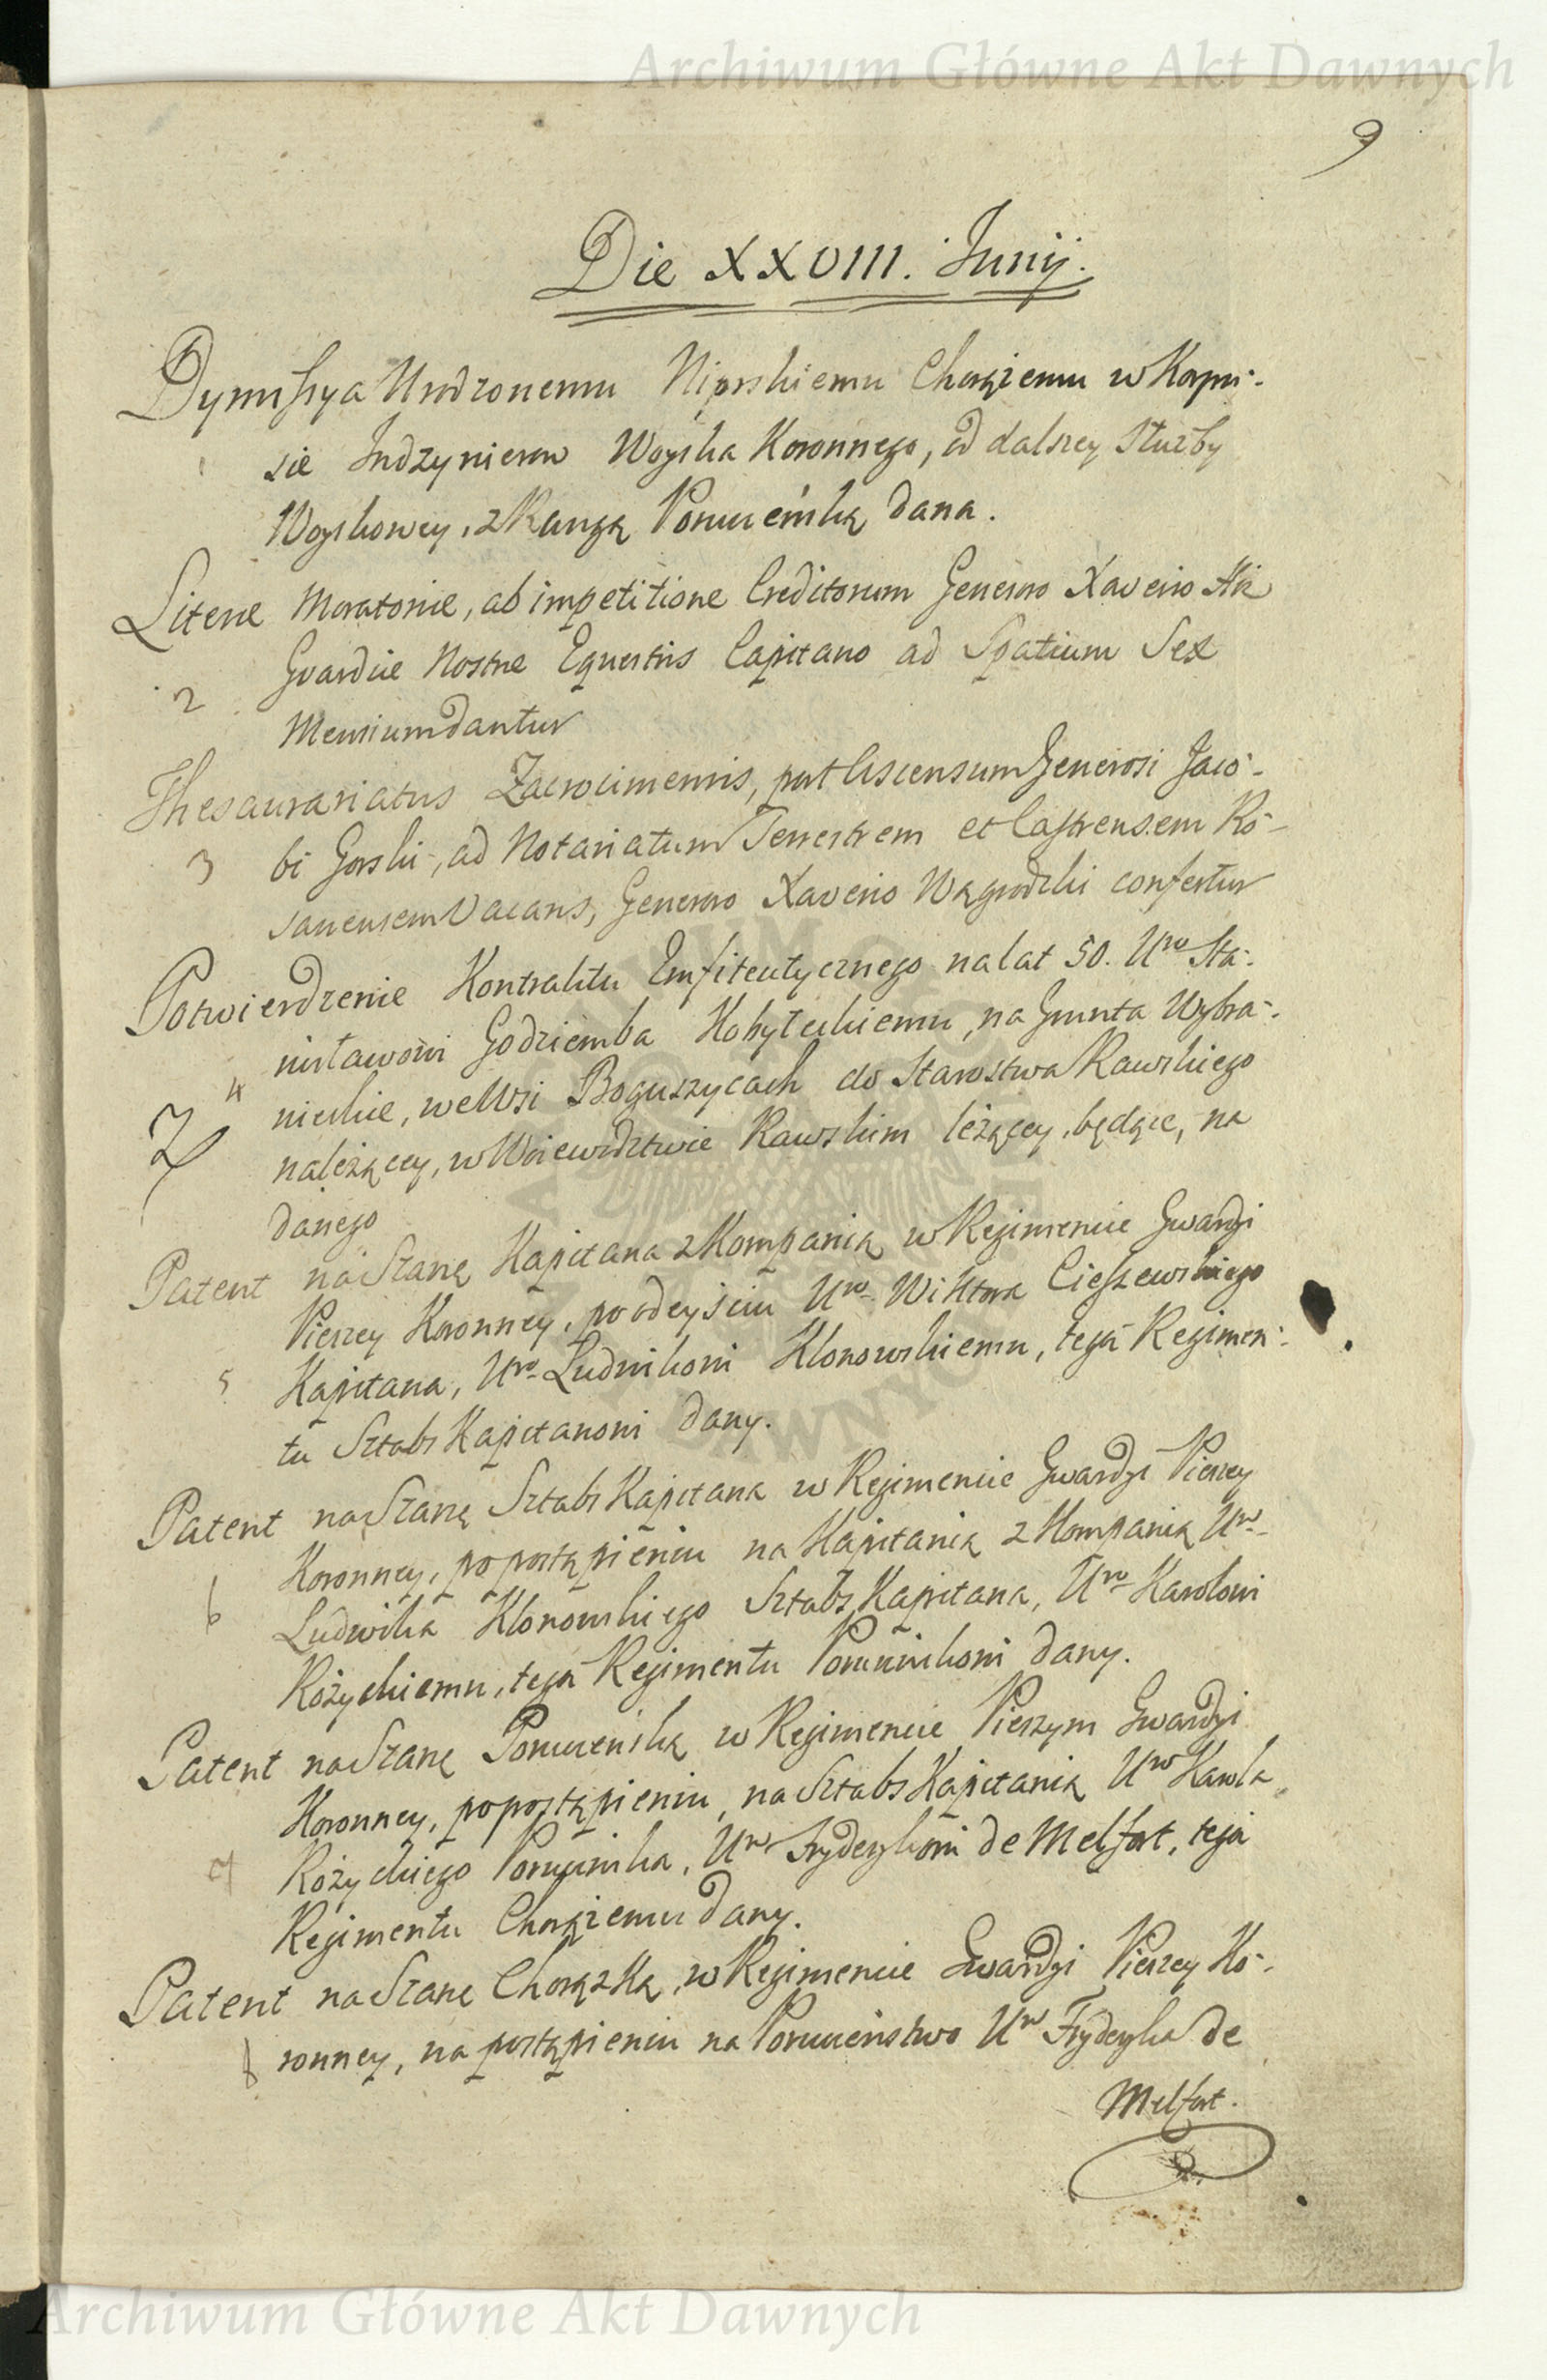 Archiwum Główne Akt Dawnych
9
Die XXVIII. Junij.
Dymissya Urodzonemu Niprskiemu Chorążemu w Korpu-
1 sie Indzynierow Woyska Koronnego, od dalszey Służby
Woyskowey, z Rangą Porucznika dana.
Literæ Moratoriæ, ab impetitione Creditorum Generoso Xaverio
Gvardiæ Nostræ Equestris Capitano ad Spatium Sex
2 Mensium dantur
Thesaurariatus Zacrocimensis, post Ascensum Generosi Jaco-
3 bi Gorski, ad Notariatum Terrestrem et Castrensem Ro-
sanensem Vacans, Generoso Xaverio Wągrodzki confertur
Potwierdzenie Kontraktu Emfiteutycznego na lat 50. Uro Sta-
nisławowi Godziemba Kobyłeckiemu, na Grunta Wybra-
4 nieckie, we Wsi Boguszycach do Starostwa Rawskiego
należącey, w Woiewodztwie Rawskim leżącey, będące, na
danego
Patent na Szarżę Kapitana z Kompanią w Regimencie Gwardyi
Pieszey Koronney, po odeyściu Uro Wiktora Cieszewskiego
5 Kapitana, Uro Ludwikowi Klonowskiemu, tegoż Regimen-
tu Sztabs Kapitanowi dany.
Patent na Szarżę Sztabs Kapitana w Regimencie Gwardyi Pieszey
Koronney, po postąpieniu na Kapitanią z Kompanią Uro
6 Ludwika Klonowskiego Sztabs Kapitana, Uro Karolowi
Różyckiemu, tegoż Regimentu Porucznikowi dany.
Patent na Szarżę Porucznika w Regimencie Pieszym Gwardyi
Koronney, po postąpieniu, na Sztabs Kapitanią Uro Karola
7 Różyckiego Porucznika, Uro Fryderykowi de Melfort, tegoż
Regimentu Chorążemu dany.
Patent na Szarżę Chorążką, w Regimencie Gwardyi Pieszey Ko-
8 ronney, na postąpieniu na Poruczeństwo Uro Fryderyka de
Melfort.
Archiwum Główne Akt Dawnych